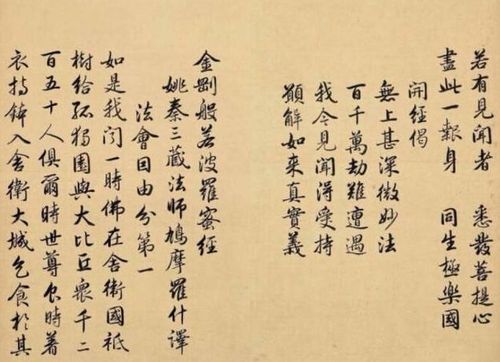 若有見聞者 悉發菩提心
盡此一報身 同生極樂國
開經偈
無上甚深微妙法
百千萬劫難遭遇
我今見聞得受持
願解如來真實義
金剛般若波羅蜜經
姚秦三藏法師鳩摩羅什譯
法會因由分第一
如是我聞一時佛在舍衛國祇
樹給孤獨園與大比丘眾千二
百五十人俱爾時世尊食時著
衣持鉢入舍衛大城乞食於其